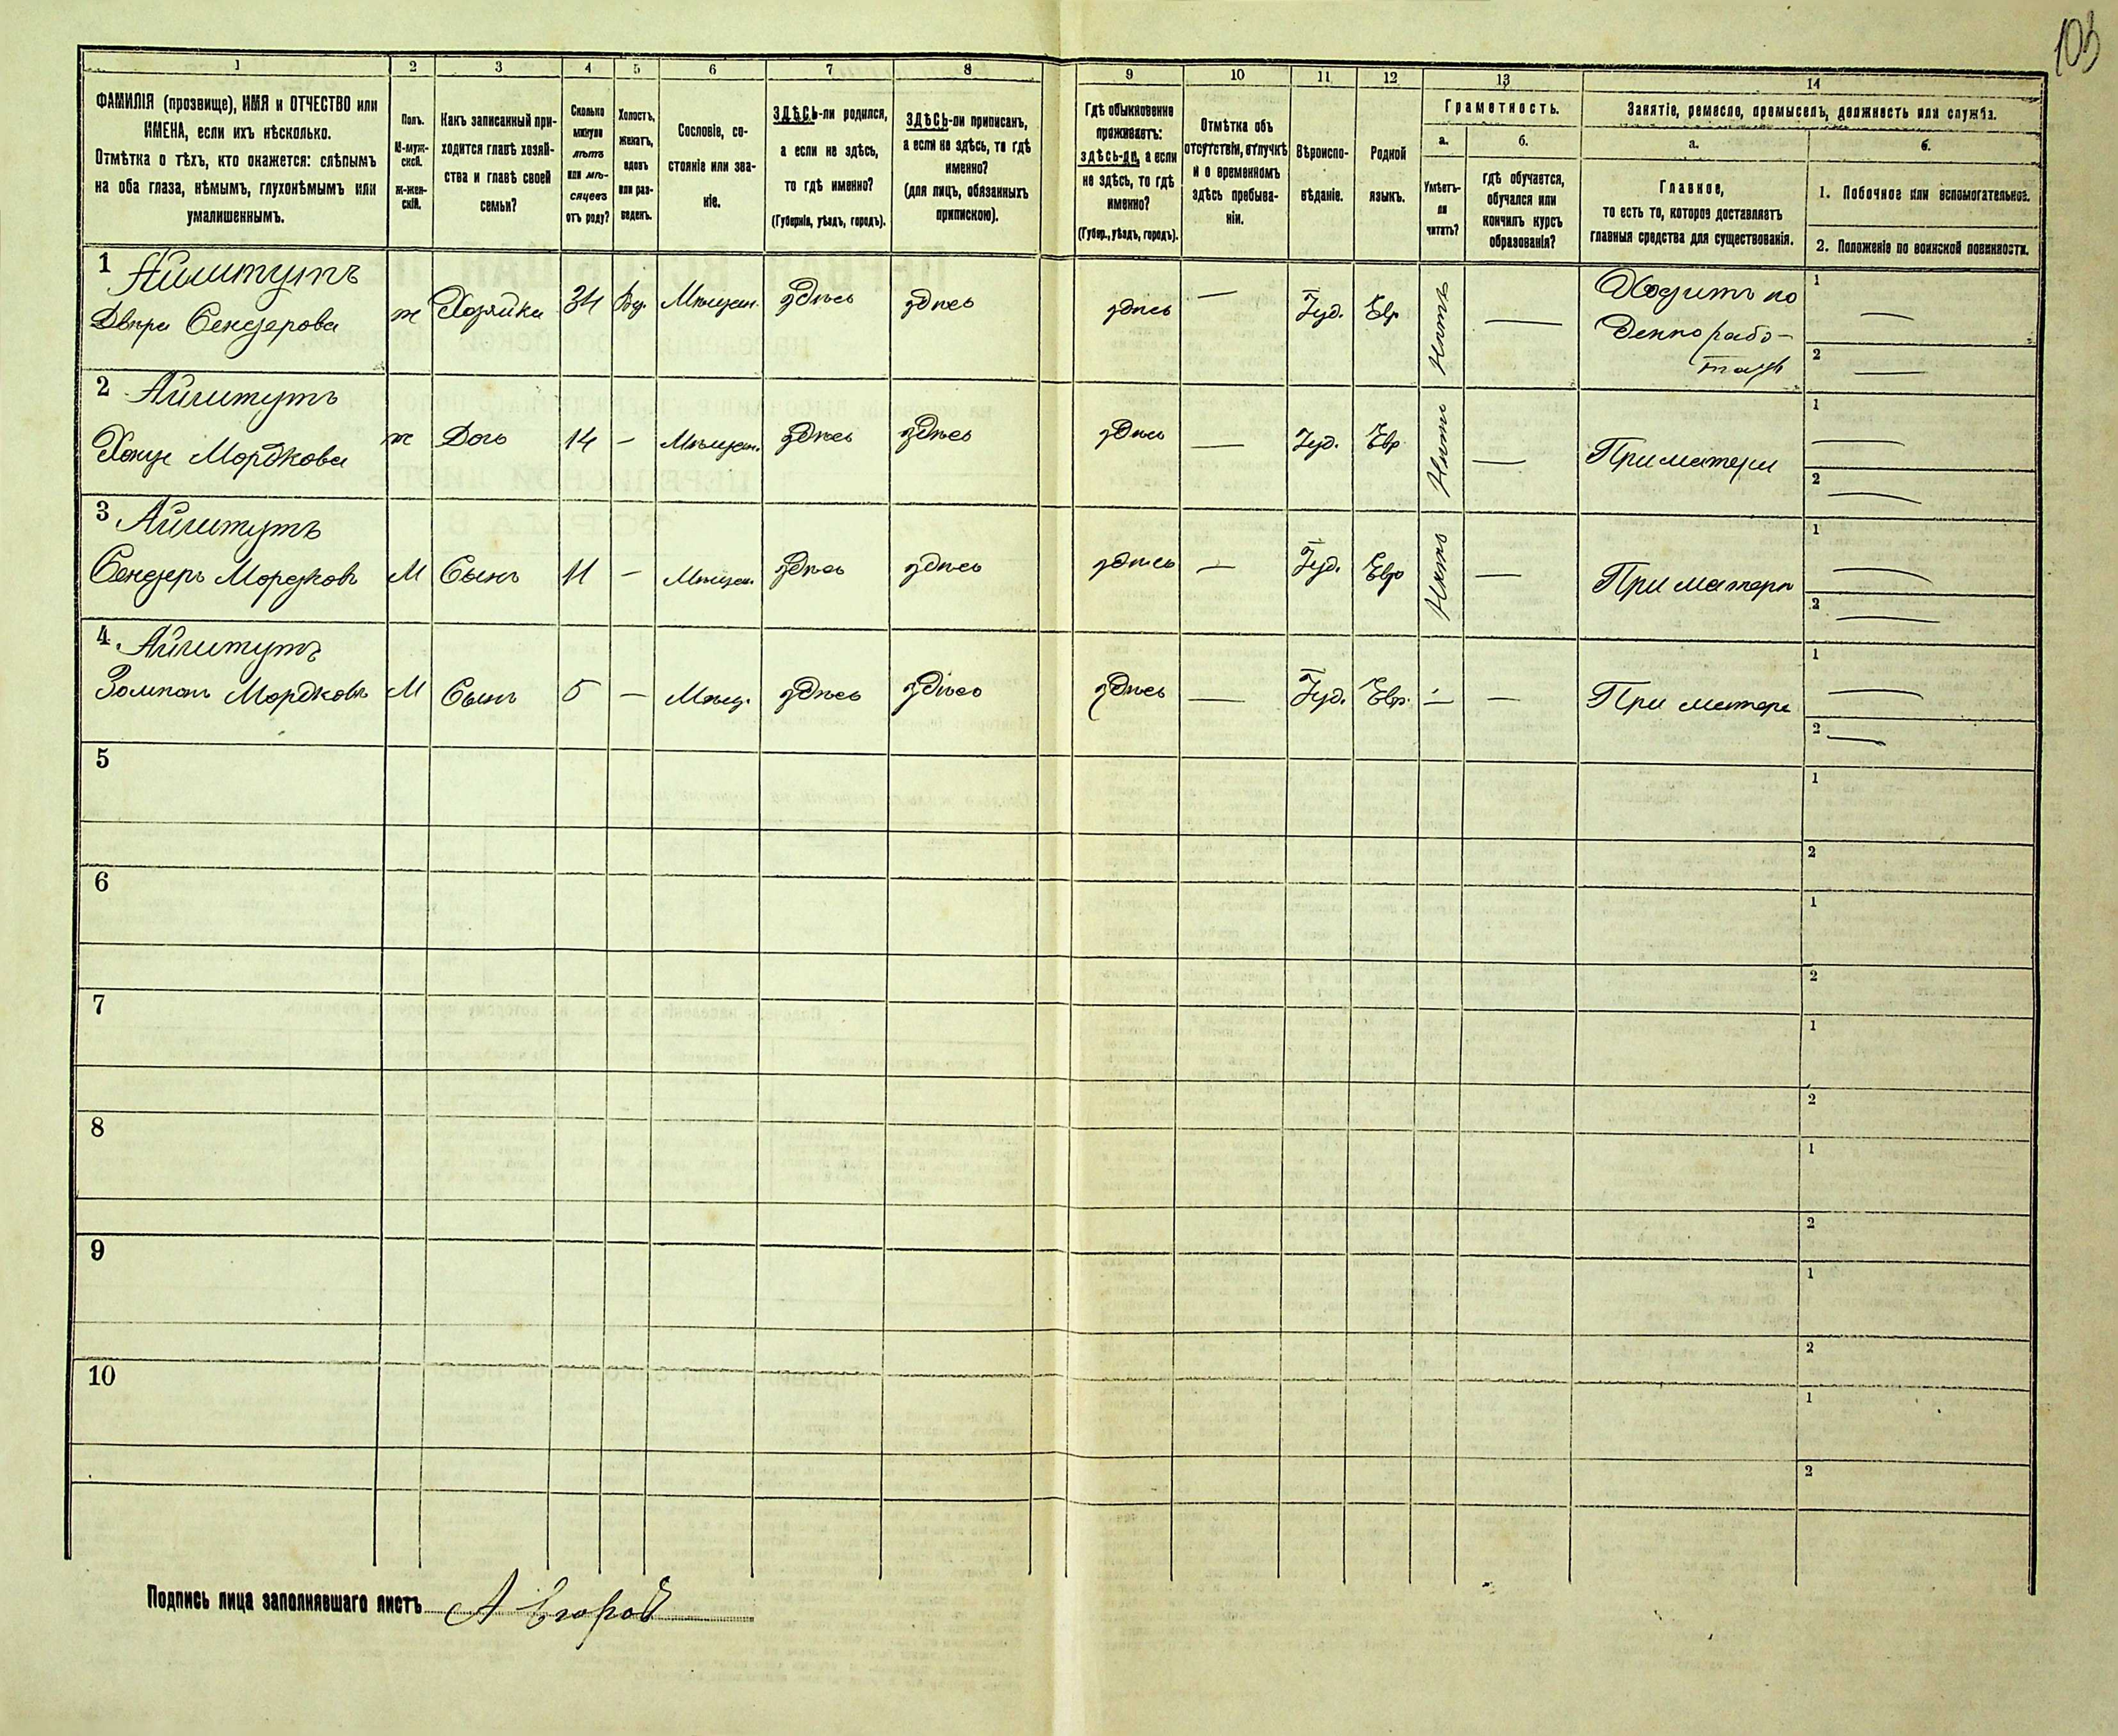 103
1 2 3 4 5 6 7 8 9 10 11 12 13 14
ФАМИЛІЯ (прозвище), ИМЯ и ОТЧЕСТВО или
ИМЕНА, если ихъ нѣсколько.
Отмѣтка о тѣхъ, кто окажется: слѣпымъ
на оба глаза, нѣмымъ, глухонѣмымъ или
умалишеннымъ.
Полъ.
М-муж-
ской.
ж-жен-
скій.
Какъ записанный при-
ходится главѣ хозяй-
ства и главѣ своей
семьи?
Сколько
минуло
лѣтъ
или мѣ-
сяцевъ
отъ роду?
Холостъ,
женатъ,
вдовъ
или раз-
веденъ.
Сословіе, со-
стояніе или зва-
ніе.
ЗДѢСЬ-ли родился,
а если не здѣсь,
то гдѣ именно?
(Губернія, уѣздъ, городъ).
ЗДѢСЬ-ли приписанъ,
а если не здѣсь, то гдѣ
именно?
(для лицъ, обязанныхъ
припискою).
Гдѣ обыкновенно
проживаетъ:
здѣсь-ли, а если
не здѣсь, то гдѣ
именно?
(Губер., уѣздъ, городъ).
Отмѣтка объ
отсутствіи, отлучкѣ
и о временномъ
здѣсь пребыва-
ніи.
Вѣроиспо-
вѣданіе.
Родной
языкъ.
Грамотность.
а.
Умѣетъ-
ли
читать?
б.
гдѣ обучается,
обучался или
кончилъ курсъ
образованія?
Занятіе, ремесло, промыселъ, должность или служба.
а.
Главное,
то есть то, которое доставляетъ
главныя средства для существованія.
б.
1. Побочное или вспомогательное.
2. Положеніе по воинской повинности.
1 Айзитутъ
Двера Сендерова ж Хозяйка 34 Вд. Мѣщан. здѣсь здѣсь здѣсь — Іуд. Евр. Нѣтъ — Ходитъ по 1 —
денно рабо-
тать 2 —
2 Айзитутъ
Мордкова ж Дочь 14 - Мѣщан. здѣсь здѣсь здѣсь — Іуд. Евр Нѣтъ — При матери 1 —
2 —
3 Айзитутъ
Сендеръ Мордковъ М Сынъ 11 - Мѣщан. здѣсь здѣсь здѣсь — Іуд. Евр Нѣтъ — При матери 1 —
2 —
4. Айзитутъ
Мордковъ М Сынъ 5 - Мѣщ. здѣсь здѣсь здѣсь — Іуд. Евр. — — При матери 1 —
2 —
5 1
2
6 1
2
7 1
2
8 1
2
9 1
2
10 1
2
Подпись лица заполнявшаго листъ